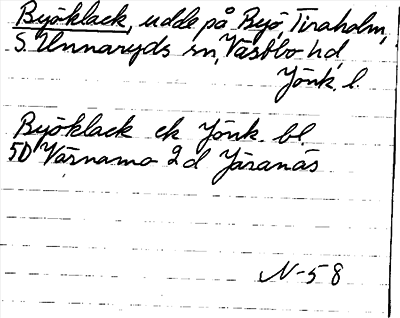 Byöklack, udde på Byö, Tiraholm,
S. Unnaryds sn, Västbo hd,
Jönk. l.
Byöklack ek Jönk. bl.
5D Värnamo 2d Järanäs
N-58